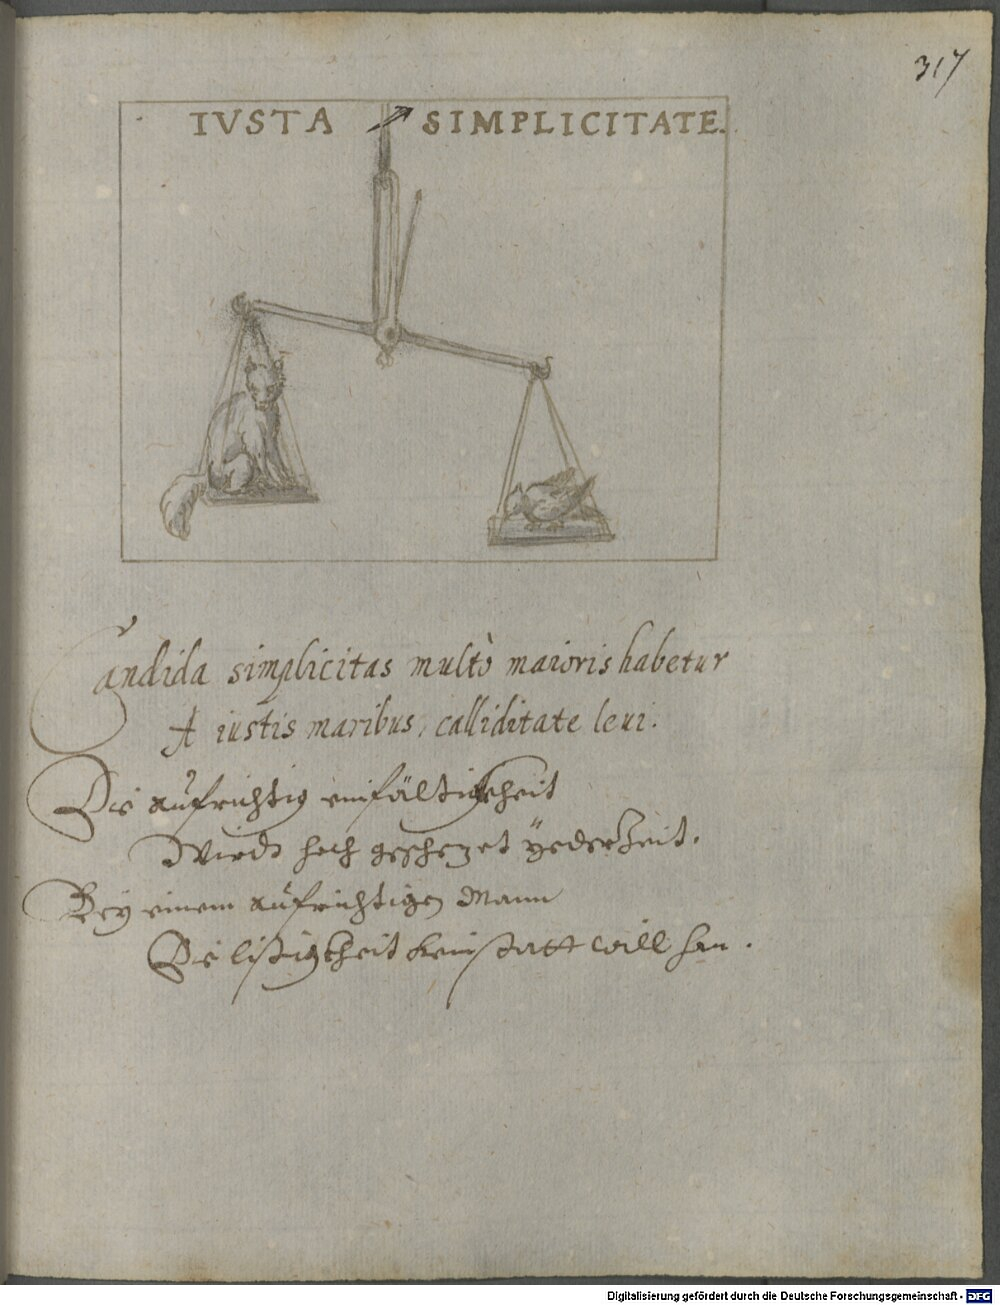 317
IVSTA SIMPLICITATE.
Candida simplicitas multò maioris habetur
A iustis maribus, calliditate leui.
Die aufrichtig einfältigkheit
Wirdt hoch geschezet yederzeit.
Bey einem aufrichtigen Mann
Die listigkheit kein statt will han.
Digitalisierung gefördert durch die Deutsche Forschungsgemeinschaft - DFG